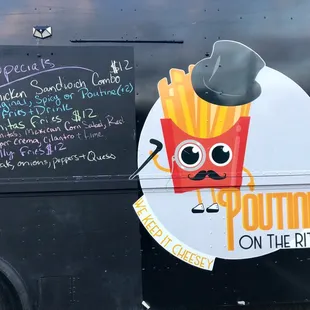 Specials
Chicken Sandwich Combo $12
Original, Spicy or Poutine (+2)
Fries + Drink
Fries $12
Mexican Corn Salad, Red
crema, cilantro + Lime
Fries $12
onions, peppers + Queso
WE KEEP IT CHEESEY
POUTIN
ON THE RIT